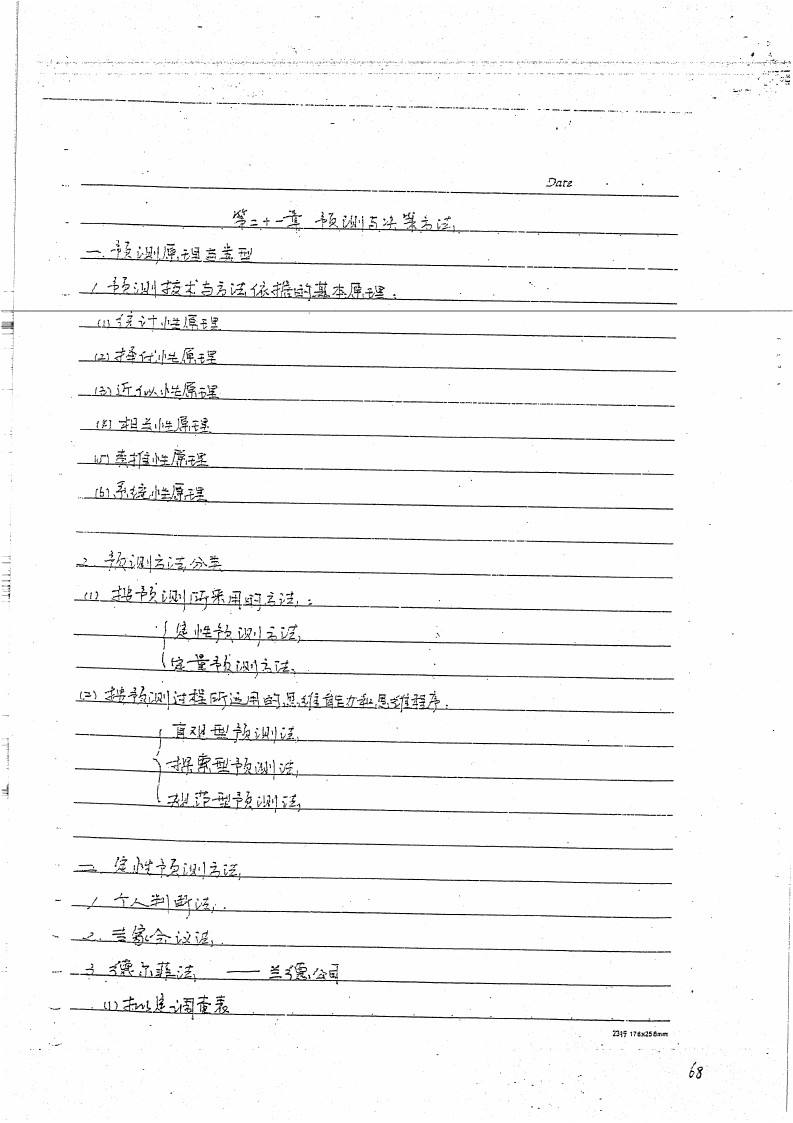 Date
第二十一章 预测与决策方法
一. 预测原理与类型
1. 预测技术与方法依据的基本原理:
(1) 统计性原理
(2) 择优性原理
(3) 近似性原理
(4) 相关性原理
(5) 类推性原理
(6) 系统性原理
2. 预测方法分类
(1) 按预测所采用的方法:
定性预测方法
定量预测方法
(2) 按预测过程所运用的思维能力和思维程序.
直观型预测法
探索型预测法
规范型预测法
二. 定性预测方法
1. 个人判断法
2. 专家会议法
3. 德尔菲法 —— 兰德公司
(1) 拟定调查表
23行 176x256mm
68